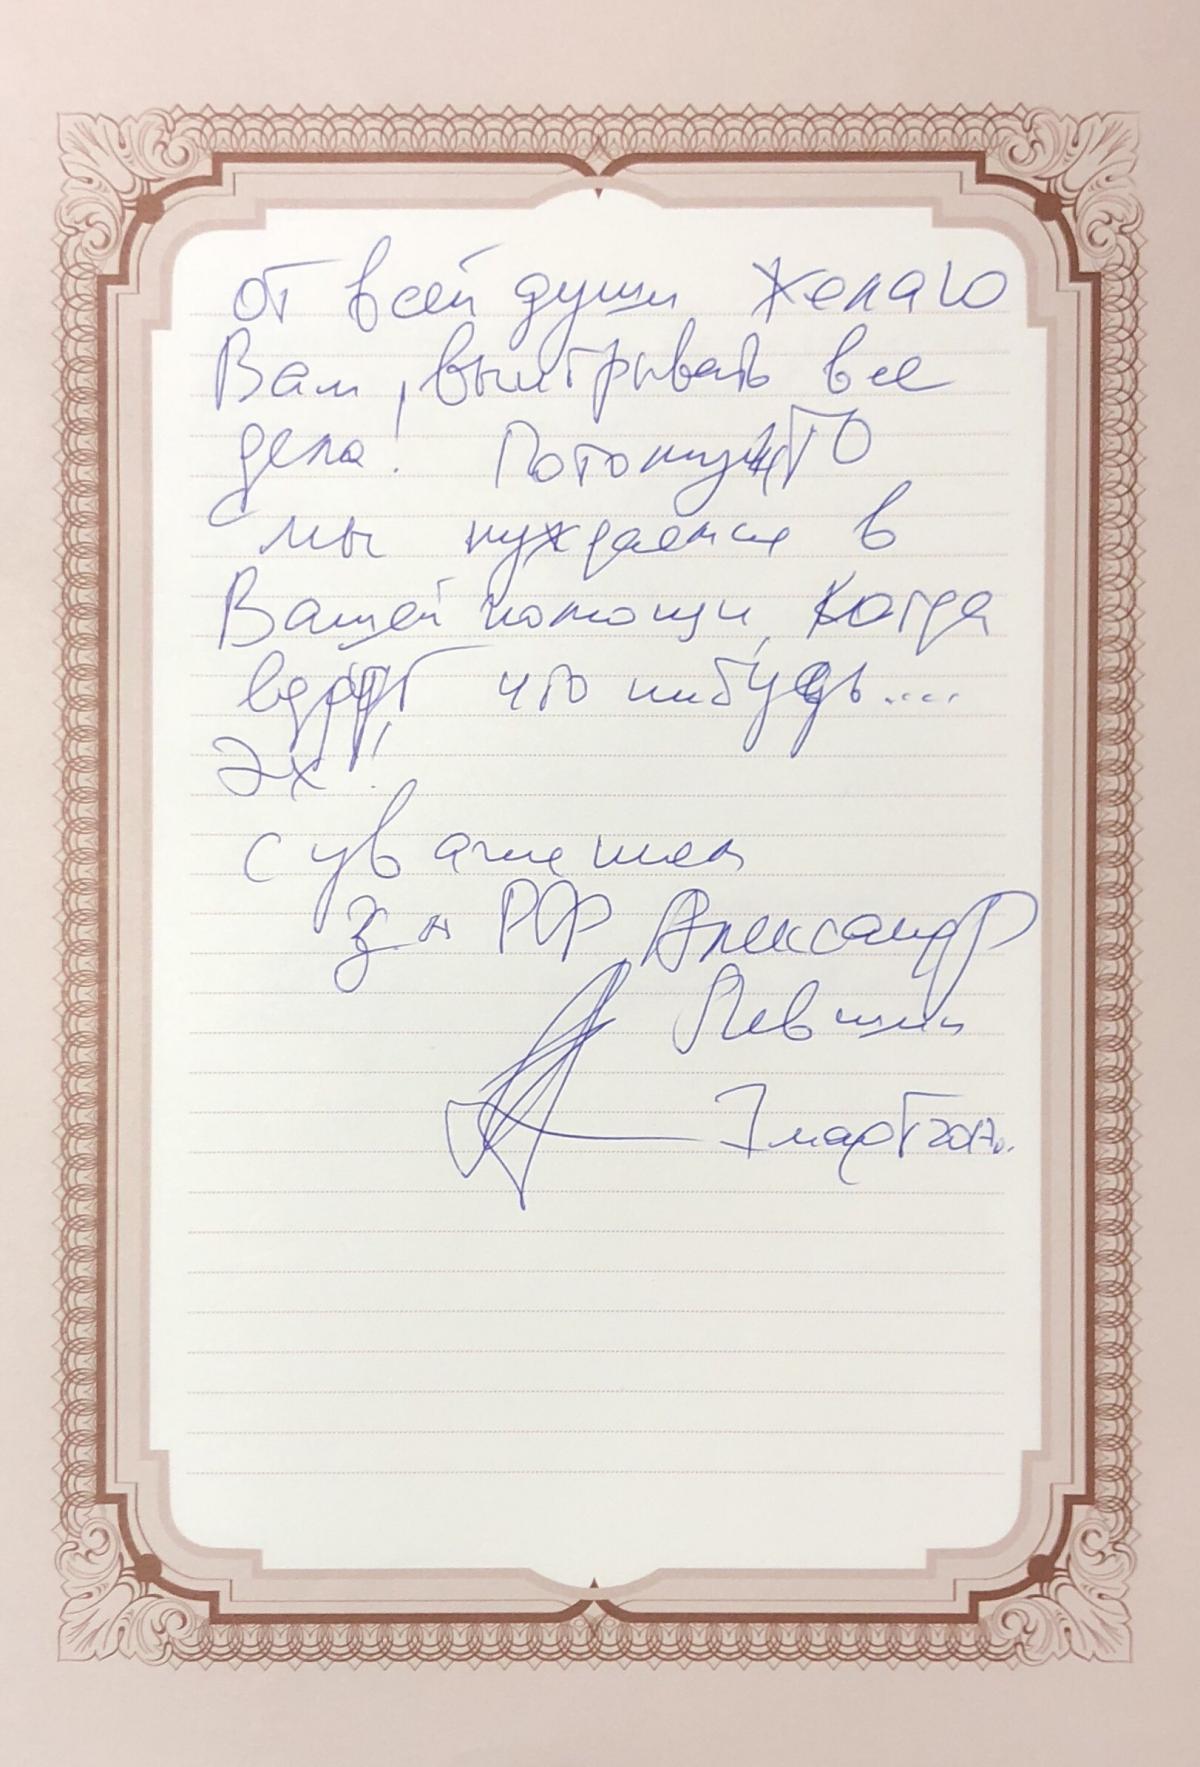 от всей души желаю
Вам, выигрывать все
дела! Потому что
мы нуждаемся в
Вашей помощи, когда
вдруг что нибудь....
Эх!
с уважением
з.а РФ Александр
Левшин
7 март 2017г.